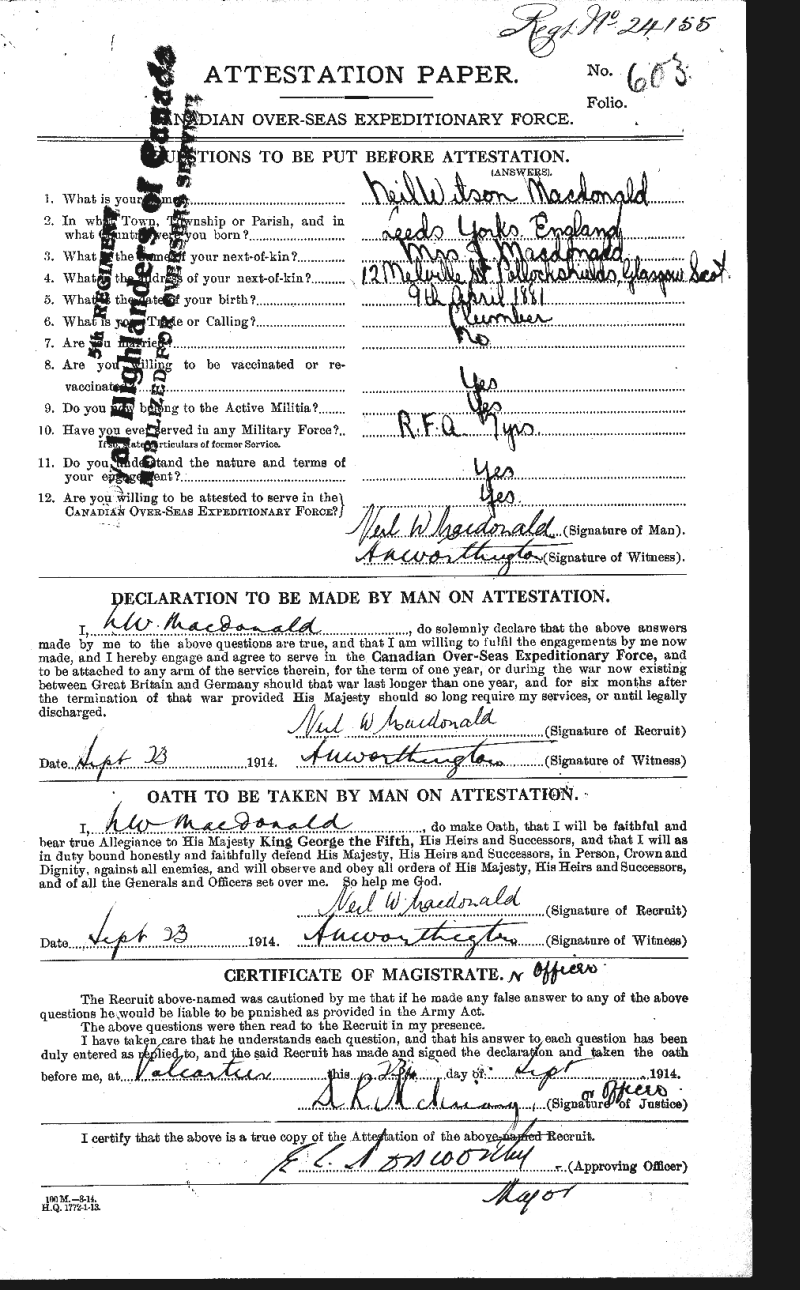 Regt. No. 24155
ATTESTATION PAPER.
No. 603
Folio.
CANADIAN OVER-SEAS EXPEDITIONARY FORCE.
5th REGIMENT
Royal Highlanders of Canada
MOBILIZED FOR OVERSEAS SERVICE
QUESTIONS TO BE PUT BEFORE ATTESTATION.
(ANSWERS).
1. What is your name? Neil Wilson Macdonald
2. In what Town, Township or Parish, and in
what Country were you born? Leeds Yorks. England
3. What is the name of your next-of-kin? Mrs J Macdonald
4. What is the address of your next-of-kin? 12 Melville St Pollockshields, Glasgow Scot.
5. What is the date of your birth? 9th April 1881
6. What is your Trade or Calling? Plumber
7. Are you married? No
8. Are you willing to be vaccinated or re-
vaccinated? Yes
9. Do you now belong to the Active Militia? Yes
10. Have you ever served in any Military Force? R.F.A. 7yrs.
If so, state particulars of former Service.
11. Do you understand the nature and terms of
your engagement? Yes
12. Are you willing to be attested to serve in the
CANADIAN OVER-SEAS EXPEDITIONARY FORCE? Yes.
Neil W Macdonald (Signature of Man).
Anworthington (Signature of Witness).
DECLARATION TO BE MADE BY MAN ON ATTESTATION.
I, N.W. Macdonald, do solemnly declare that the above answers
made by me to the above questions are true, and that I am willing to fulfil the engagements by me now
made, and I hereby engage and agree to serve in the Canadian Over-Seas Expeditionary Force, and
to be attached to any arm of the service therein, for the term of one year, or during the war now existing
between Great Britain and Germany should that war last longer than one year, and for six months after
the termination of that war provided His Majesty should so long require my services, or until legally
discharged.
Neil W Macdonald (Signature of Recruit)
Date Sept 23 1914. Anworthington (Signature of Witness)
OATH TO BE TAKEN BY MAN ON ATTESTATION.
I, NW MacDonald, do make Oath, that I will be faithful and
bear true Allegiance to His Majesty King George the Fifth, His Heirs and Successors, and that I will as
in duty bound honestly and faithfully defend His Majesty, His Heirs and Successors, in Person, Crown and
Dignity, against all enemies, and will observe and obey all orders of His Majesty, His Heirs and Successors,
and of all the Generals and Officers set over me. So help me God.
Neil W Macdonald (Signature of Recruit)
Date Sept 23 1914. Anworthington (Signature of Witness)
CERTIFICATE OF MAGISTRATE. or Officer
The Recruit above-named was cautioned by me that if he made any false answer to any of the above
questions he would be liable to be punished as provided in the Army Act.
The above questions were then read to the Recruit in my presence.
I have taken care that he understands each question, and that his answer to each question has been
duly entered as replied to, and the said Recruit has made and signed the declaration and taken the oath
before me, at Valcartier this 23 day of Sept 1914.
or Officer
(Signature of Justice)
I certify that the above is a true copy of the Attestation of the above-named Recruit.
E C Norsworthy (Approving Officer)
Major
100 M.—8-14.
H.Q. 1772-1-13.